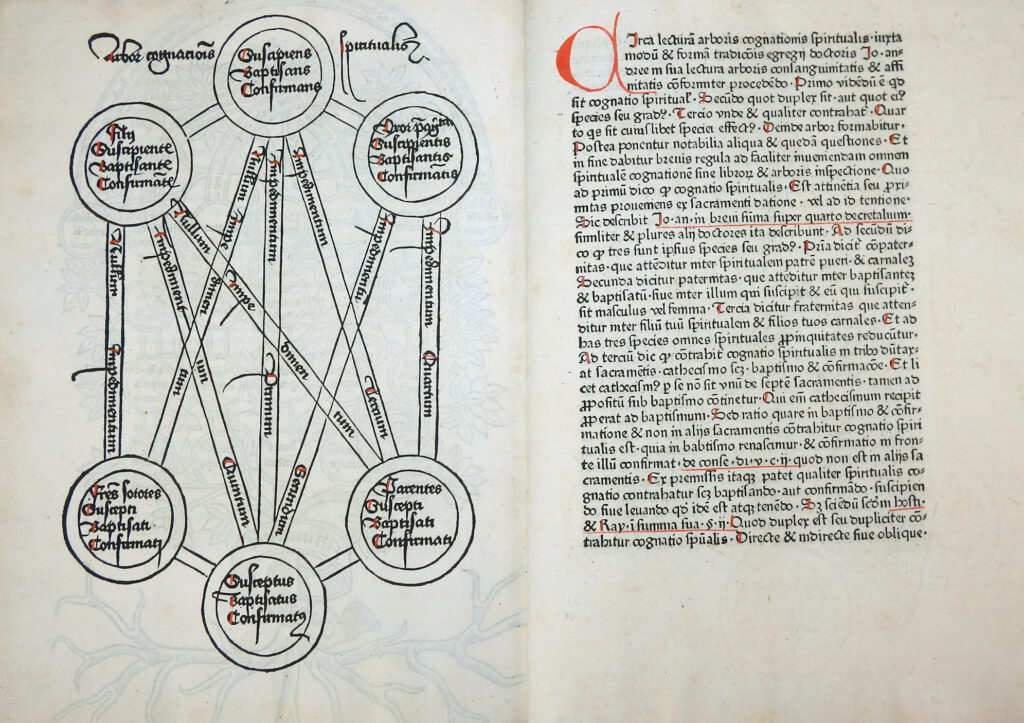 Arbor cognacioīs spiritualis
Suscipiens
Baptisans
Confirmans
Filij
Suscipiente
Baptisante
Confirmāte
Uxor
Suscipientis
Baptisantis
Confirmatis
Nullum Impedimentum
Impedimentum Quintum
Nullum Impedimentum
Nullum Impedimentum
Impedimentum Primum
Impedimentum Tercium
Impedimentum Secundum
Impedimentum Quartum
Fratres
Suscepti
Baptisati
Confirmati
Parentes
Suscepti
Baptisati
Confirmati
Susceptus
Baptisatus
Confirmatꝰ
Circa lecturā arboris cognationis spiritualis·iuxta
modū & formā tradicōis egregij doctoris Jo·an-
dree in sua lectura arboris consanguinitatis & affi
nitatis cōformiter procedēdo·Primo vidēdū ē qd
sit cognatio spiritual᷒·Secūdo quot duplex sit·aut quot eiꝰ
species seu gradꝰ·Tercio vnde & qualiter contrahat᷑·Quar
to qs sit cuiuslibet speciei effectꝰ·Demde arbor formabitur·
Postea ponentur notabilia aliqua & quedā questiones·Et
in fine dabitur breuis regula ad faciliter inueniendam omnem
spiritualē cognationē sine librorꝝ & arboris inspectione·Quo
ad primū dico ꝙ cognatio spiritualis·Est attinētia seu ꝓxi-
mitas proueniens ex sacramenti datione·vel ad id tentione·
Sic describit Jo·an·in breui sūma super quarto decretalium·
similiter & plures alij doctores ita describunt·Ad secūdū di-
co ꝙ tres sunt ipsius species seu gradꝰ·Pⁱma dicit᷑ cōpater-
nitas·que attēditur inter spiritualem patrē pueri·& carnalez
Secunda dicitur paternitas·que attēditur inter baptisantez
& baptisatū·siue inter illum qui suscipit & eū qui suscipit᷑·
sit masculus vel femma·Tercia dicitur fraternitas que atten-
ditur inter filiū tuū spiritualem & filios tuos carnales·Et ad
has tres species omnes spirituales ꝓpinquitates reducūtur·
Ad terciū dic ꝙ cōtrahit᷑ cognatio spiritualis in tribꝰ dūtax-
at sacramētis·cathecismo scz·baptismo & confirmacōe·Et li
cet cathecismꝰ ꝑ se nō sit vnū de septē sacramentis·tamen ad
ꝓpositū sub baptismo cōtinetur·Qui em̄ cathecisinum recipit
ꝓperat ad baptismum·Sed ratio quare in baptismo & cōfir-
matione & non in alijs sacramentis cōtrahitur cognatio spiri
tualis est·quia in babtismo renascimur·& cōfirmatio in fron-
te illū confirmat·de conse·di·v·c·ij·quod non est in alijs sa
cramentis·Ex premissis itaqꝫ patet qualiter spiritualis co-
gnatio contrahatur scz baptisando·aut cōfirmādo·suscipien
do siue leuando qd idē est atqꝫ tenēdo·Sz sciēdū scdm hosti·
& Ray·i summa sua·§·ij·Quod duplex est seu dupliciter cō-
trahitur cognatio spūalis·Directe & indirecte siue oblique·